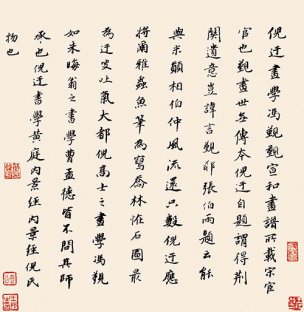 倪迂畫學馮覲覲宣和畫譜所載宋宦
官也觀畫世無傳本倪迂自題謂得荆
關遺意豈諱言觀耶張伯雨題云能
與米顛相伯仲風流還只數倪迂應
將爾雅蟲魚筆為寫喬林怪石圖最
為迂叟吐氣大都倪高士之畫學馮覲
如朱晦翁之書學曹孟德皆不問其師
承也倪迂書學黃庭內景經內景經倪氏
物也